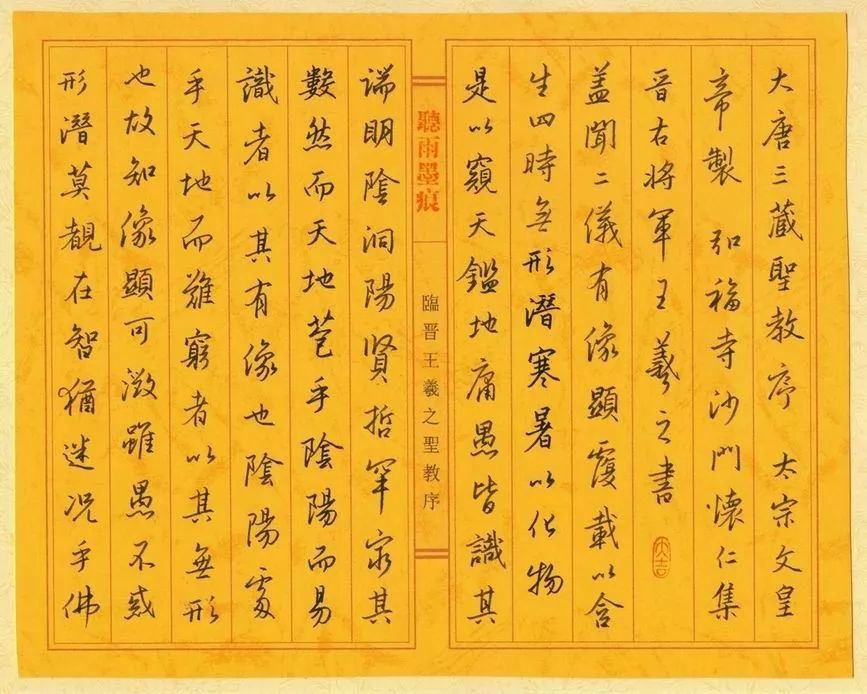 大唐三藏聖教序 太宗文皇
帝製 弘福寺沙門懷仁集
晉右將軍王羲之書
大吉
蓋聞二儀有像顯覆載以含
生四時無形潛寒暑以化物
是以窺天鑑地庸愚皆識其
聽雨墨痕
臨晉王羲之聖教序
端明陰洞陽賢哲罕窮其
數然而天地苞乎陰陽而易
識者以其有像也陰陽處
乎天地而難窮者以其無形
也故知像顯可徵雖愚不惑
形潛莫覩在智猶迷况乎佛